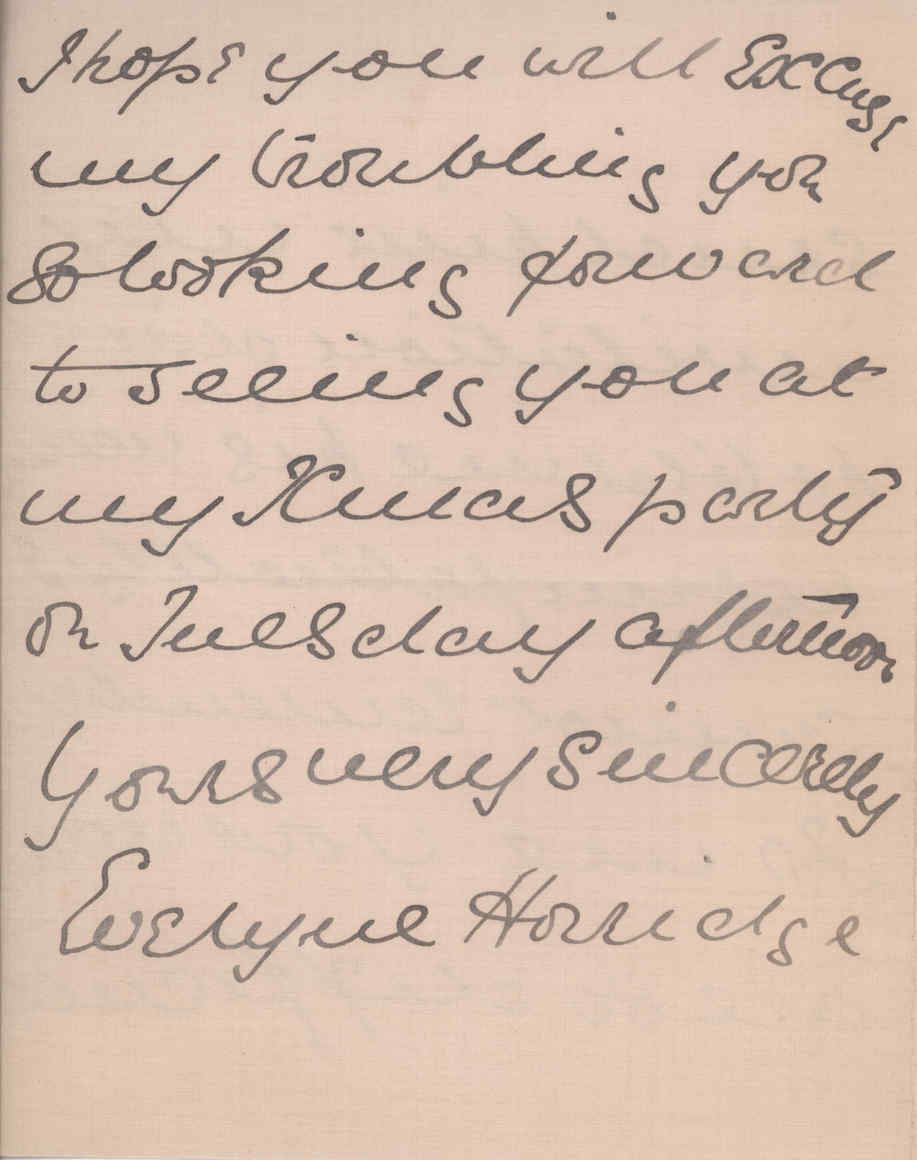 I hope you will Excuse
my troubling you
So looking forward
to seeing you at
my Xmas party
on Tuesday afternoon
Yours very Sincerely
Evelyne Horridge